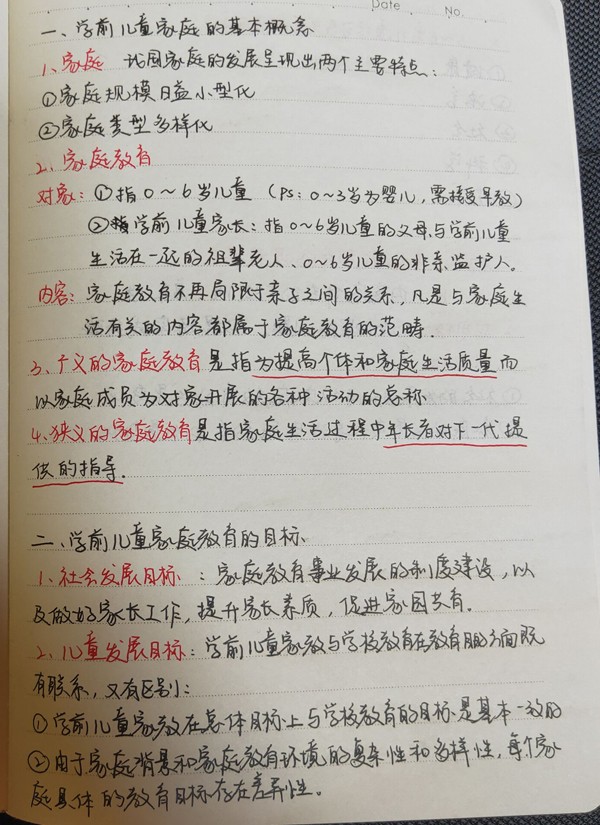 Date No.
一、学前儿童家庭的基本概念
1、家庭 我国家庭的发展呈现出两个主要特点：
①家庭规模日益小型化
②家庭类型多样化
2、家庭教育
对象：①指0～6岁儿童（Ps：0～3岁为婴儿，需接受早教）
②指学前儿童家长：指0～6岁儿童的父母、与学前儿童
生活在一起的祖辈老人、0～6岁儿童的非亲监护人。
内容：家庭教育不再局限于亲子之间的关系，凡是与家庭生
活有关的内容都属于家庭教育的范畴.
3、广义的家庭教育是指为提高个体和家庭生活质量而
以家庭成员为对象开展的各种活动的总称
4、狭义的家庭教育是指家庭生活过程中年长者对下一代提
供的指导.
二、学前儿童家庭教育的目标
1、社会发展目标：家庭教育事业发展的制度建设，以
及做好家长工作，提升家长素质，促进家园共育.
2、儿童发展目标：学前儿童家教与学校教育在教育方面既
有联系，又有区别：
①学前儿童家教在总体目标上与学校教育的目标是基本一致的
②由于家庭背景和家庭教育环境的复杂性和多样性，每个家
庭具体的教育目标存在差异性。